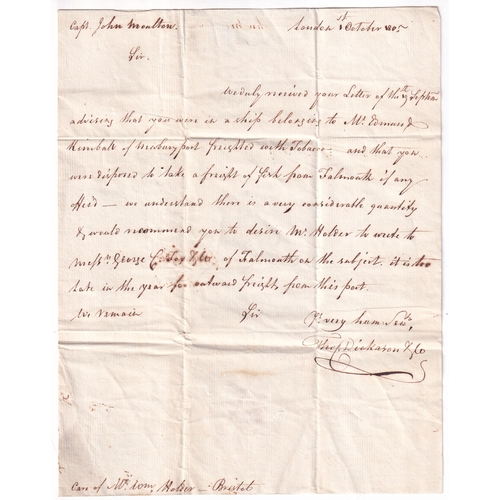 Capt. John Moulton. London 1st October 1805
Sir.
We duly received your Letter of the 29th Septem
advising that you were in a ship belonging to Mr. Edmund
Kimball of Newburyport freighted with Tobacco and that you
were disposed to take a freight of fish from Falmouth if any
offer'd — we understand there is a very considerable quantity
& would recommend you to desire Mr. Holder to write to
Messrs. George C. Fox & Co of Falmouth on the subject. it is too
late in the year for outward freights from this port.
We remain Sir Yr. very hum. Serts,
Thos. Dickason & Co
Care of Mr. Wm. Holder — Bristol